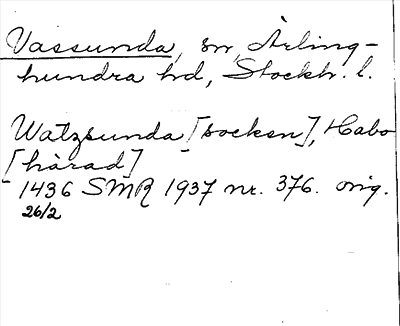 Vassunda, sn, Ärling-
hundra hd, Stockh. l.
Watzsunda [socken], Habo
[härad]
1436 SMR 1937 nr. 376. orig.
26/2